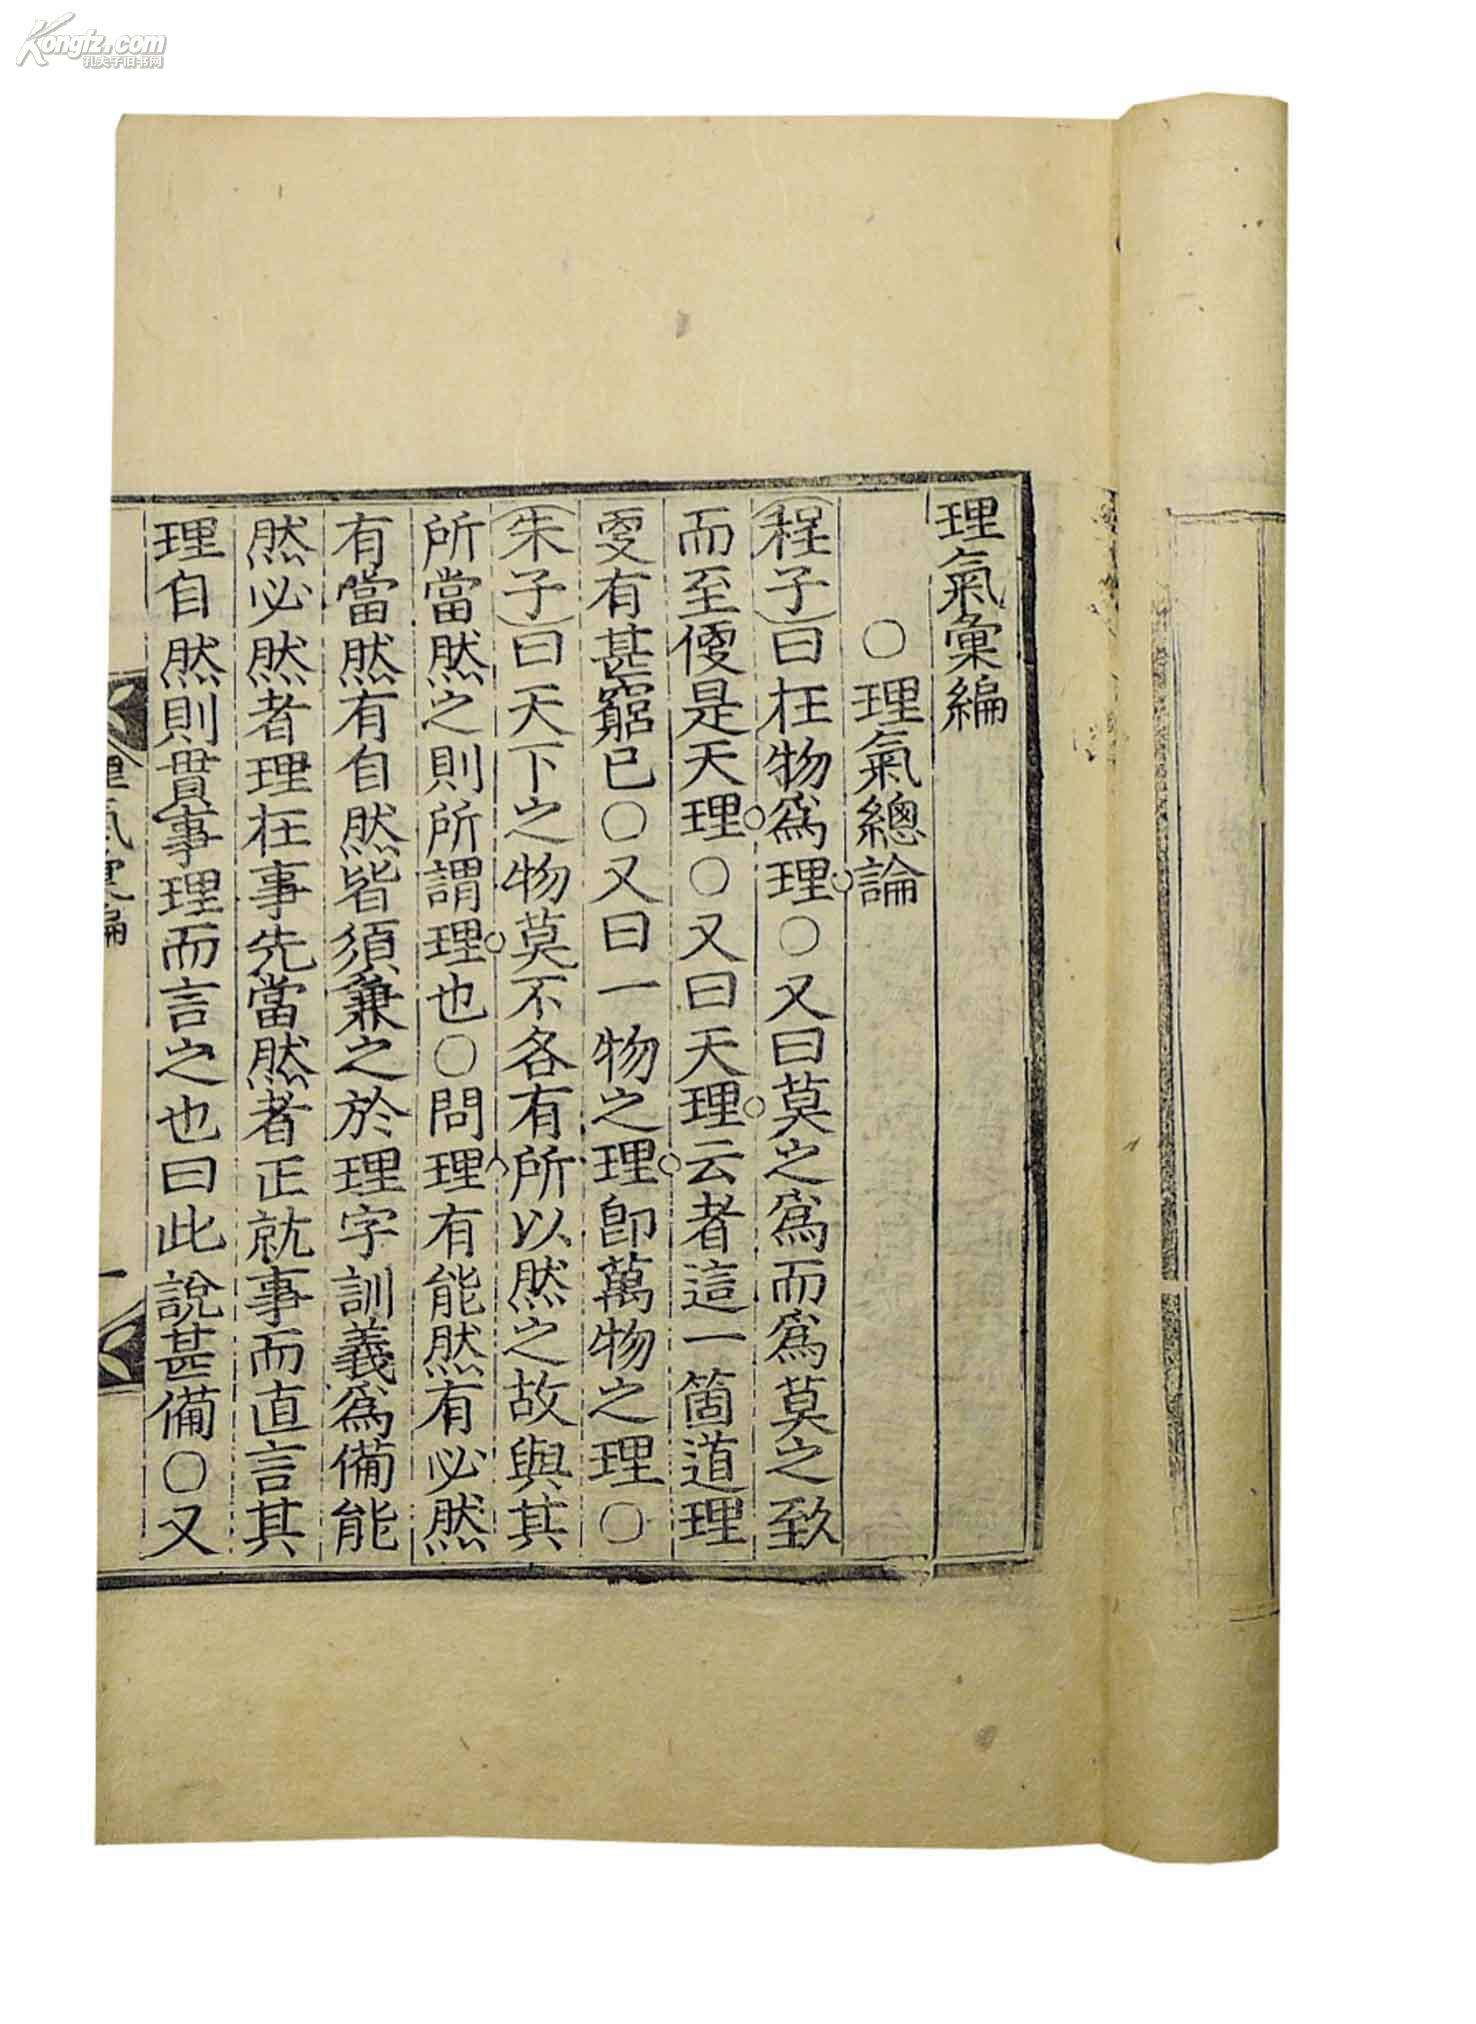 Kongfz.com
孔夫子旧书网
理氣彙編
○理氣總論
程子曰在物爲理○又曰莫之爲而爲莫之致
而至便是天理○又曰天理云者這一箇道理
更有甚窮已○又曰一物之理卽萬物之理○
朱子曰天下之物莫不各有所以然之故與其
所當然之則所謂理也○問理有能然有必然
有當然有自然皆須兼之於理字訓義爲備能
然必然者理在事先當然者正就事而直言其
理自然則貫事理而言之也曰此說甚備○又
理氣彙編
一